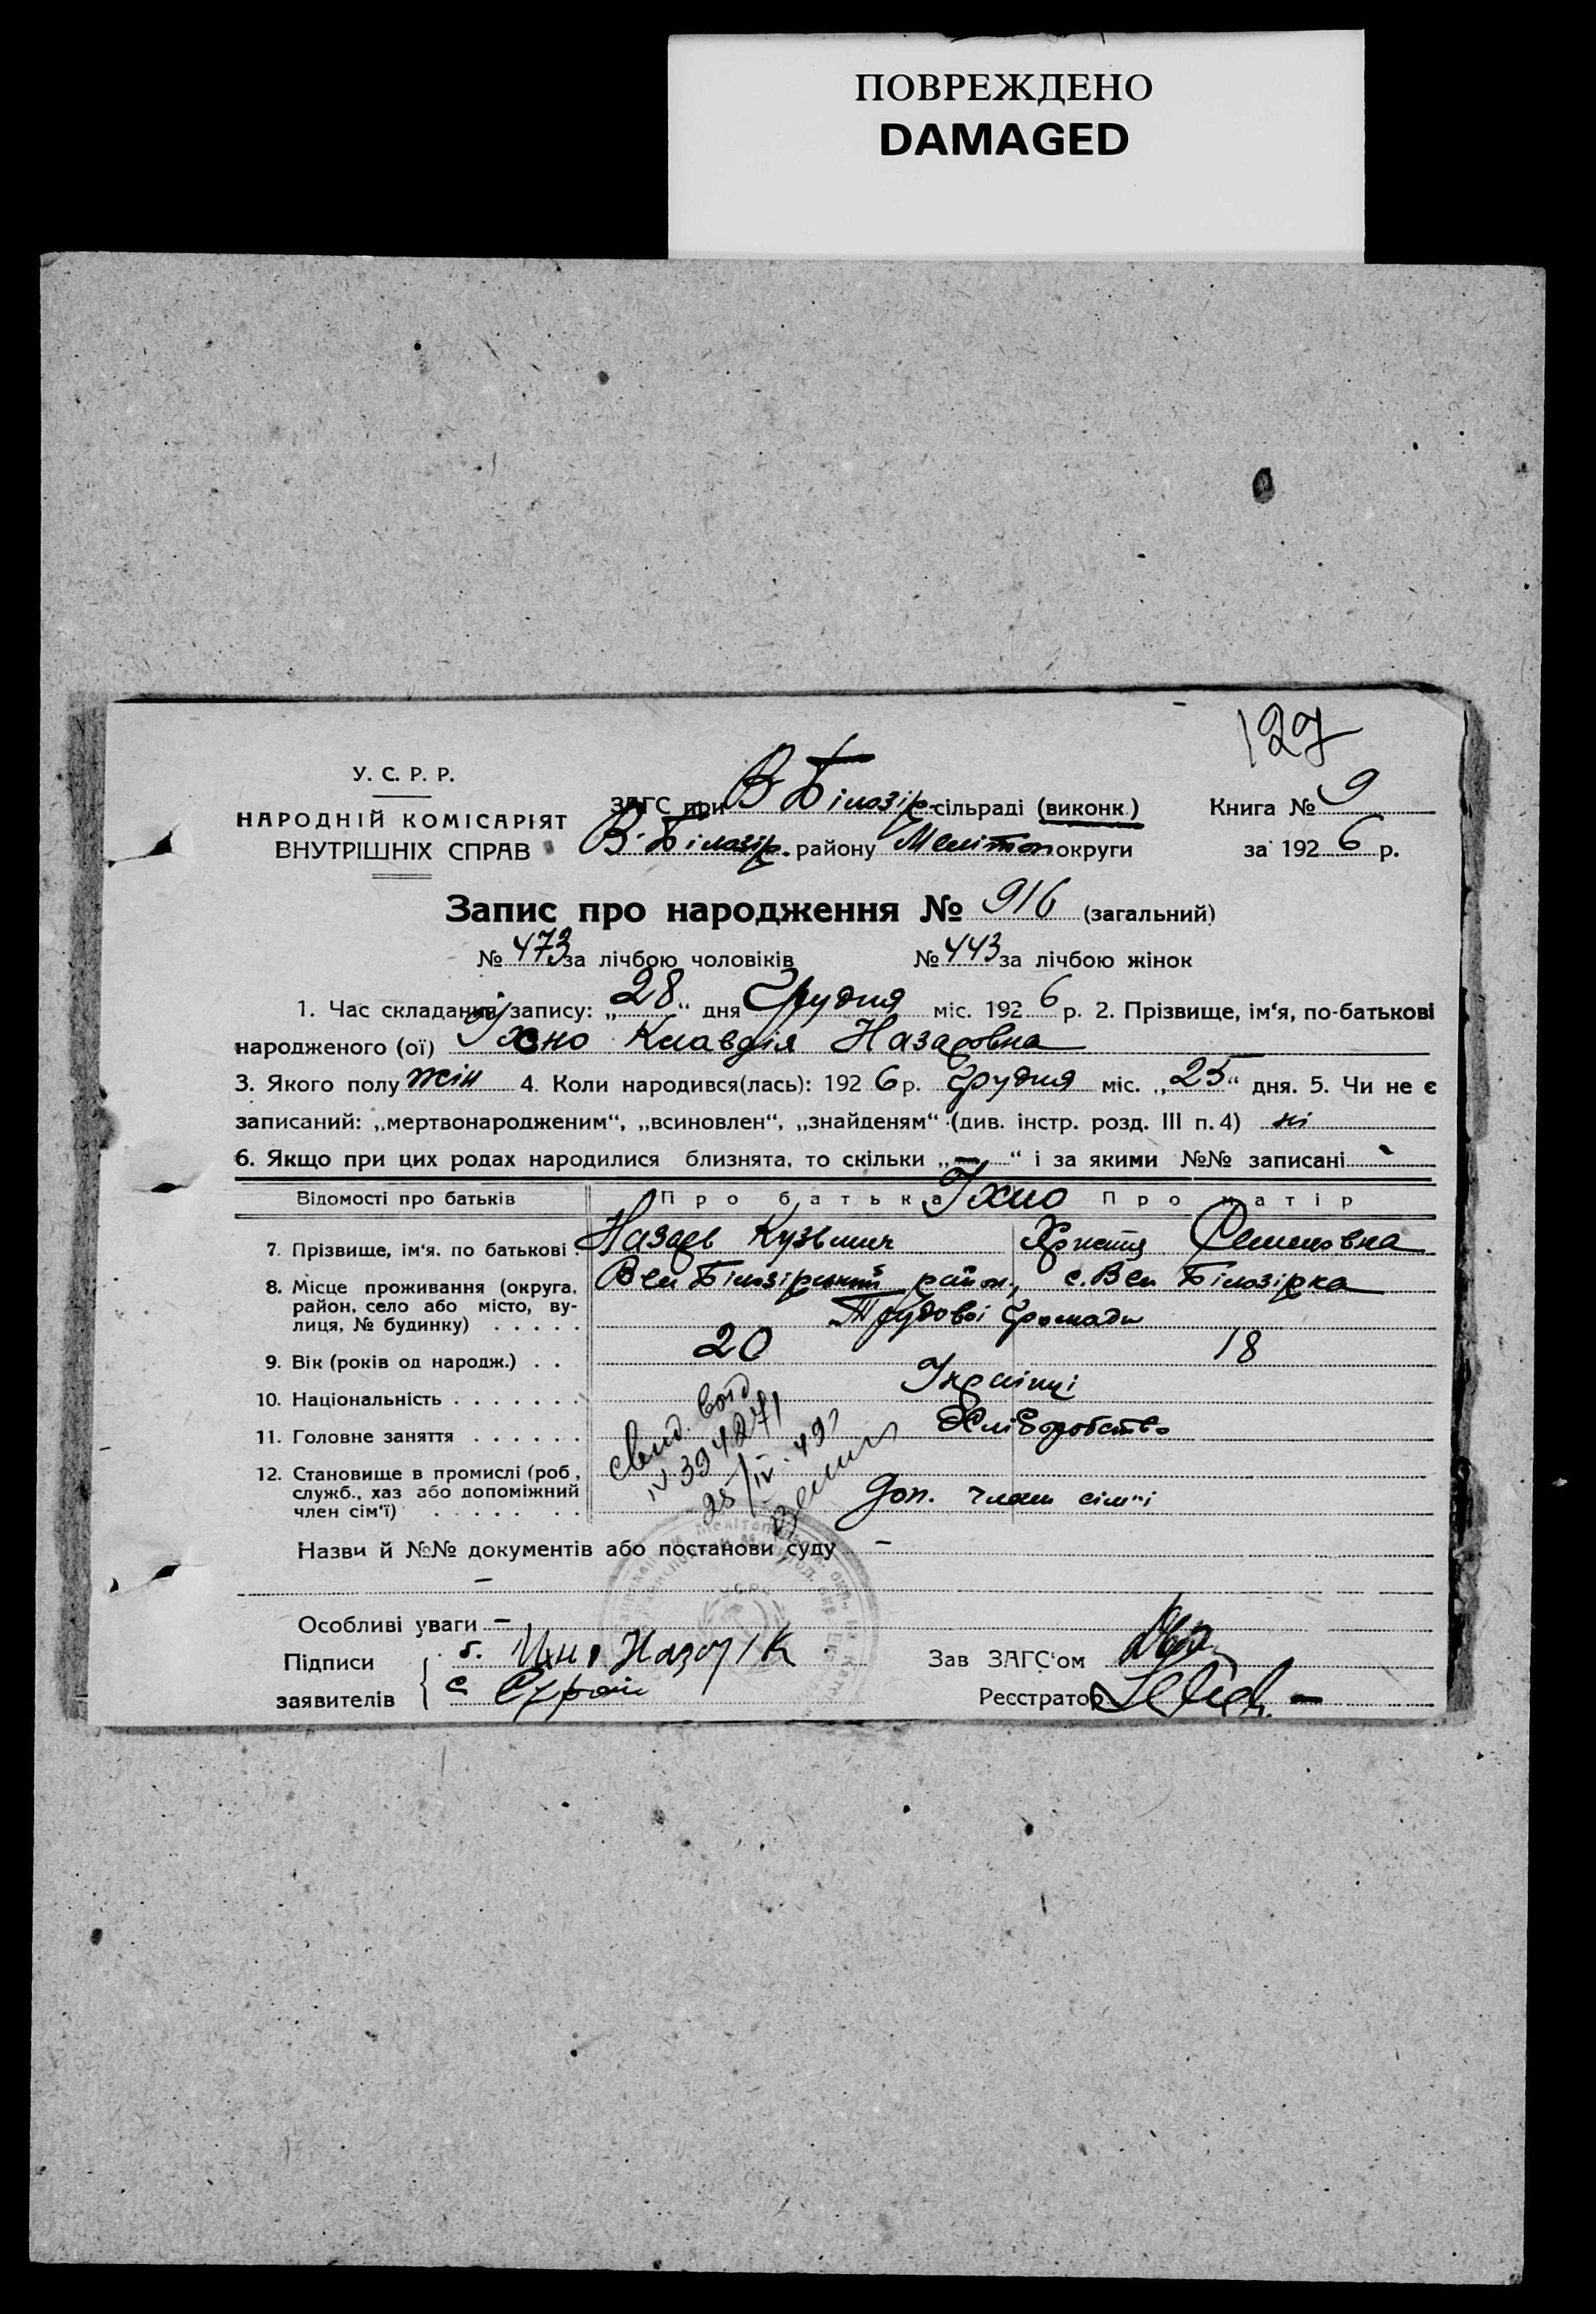 ПОВРЕЖДЕНО
DAMAGED
127
У. С. Р. Р.
НАРОДНІЙ КОМІСАРІЯТ
ВНУТРІШНІХ СПРАВ
ЗАГС при В Білозір. сільраді (виконк.)
В. Білозір. району Мелітоп округи
Книга № 9
за 1926 р.
Запис про народження № 916 (загальний)
№ 473 за лічбою чоловіків № 443 за лічбою жінок
1. Час складання запису: „28“ дня Грудня міс. 1926 р. 2. Прізвище, ім‘я, по-батькові
народженого (ої) Юхно Клавдія Назаровна
3. Якого полу жін 4. Коли народився(лась): 1926 р. Грудня міс. „25“ дня. 5. Чи не є
записаний: „мертвонародженим“, „всиновлен“, „знайденям“ (див. інстр. розд. III п. 4) ні
6. Якщо при цих родах народилися близнята, то скільки „—“ і за якими №№ записані -
Відомості про батьків Про батька Юхно Про матір
7. Прізвище, ім‘я. по батькові . Назарь Кузьмич Христя Семеновна
8. Місце проживання (округа, Вел Білозірський район., с. Вел Білозірка
район, село або місто, ву-
лиця, № будинку) . . . . . Трудової Громади
9. Вік (років од народж.) . . 20 18
10. Національність . . . . . . . Українці
11. Головне заняття . . . . . . Хліборобство
12. Становище в промислі (роб,
служб., хаз або допоміжний
член сім‘ї) . . . . . . . Доп. член сім'ї
свид. выд
IV 394271
25/IV-49
Назви й №№ документів або постанови суду —
—
Особливі уваги —
Підписи
заявителів
б. Назар К
с
Зав ЗАГС‘ом
Реєстратор